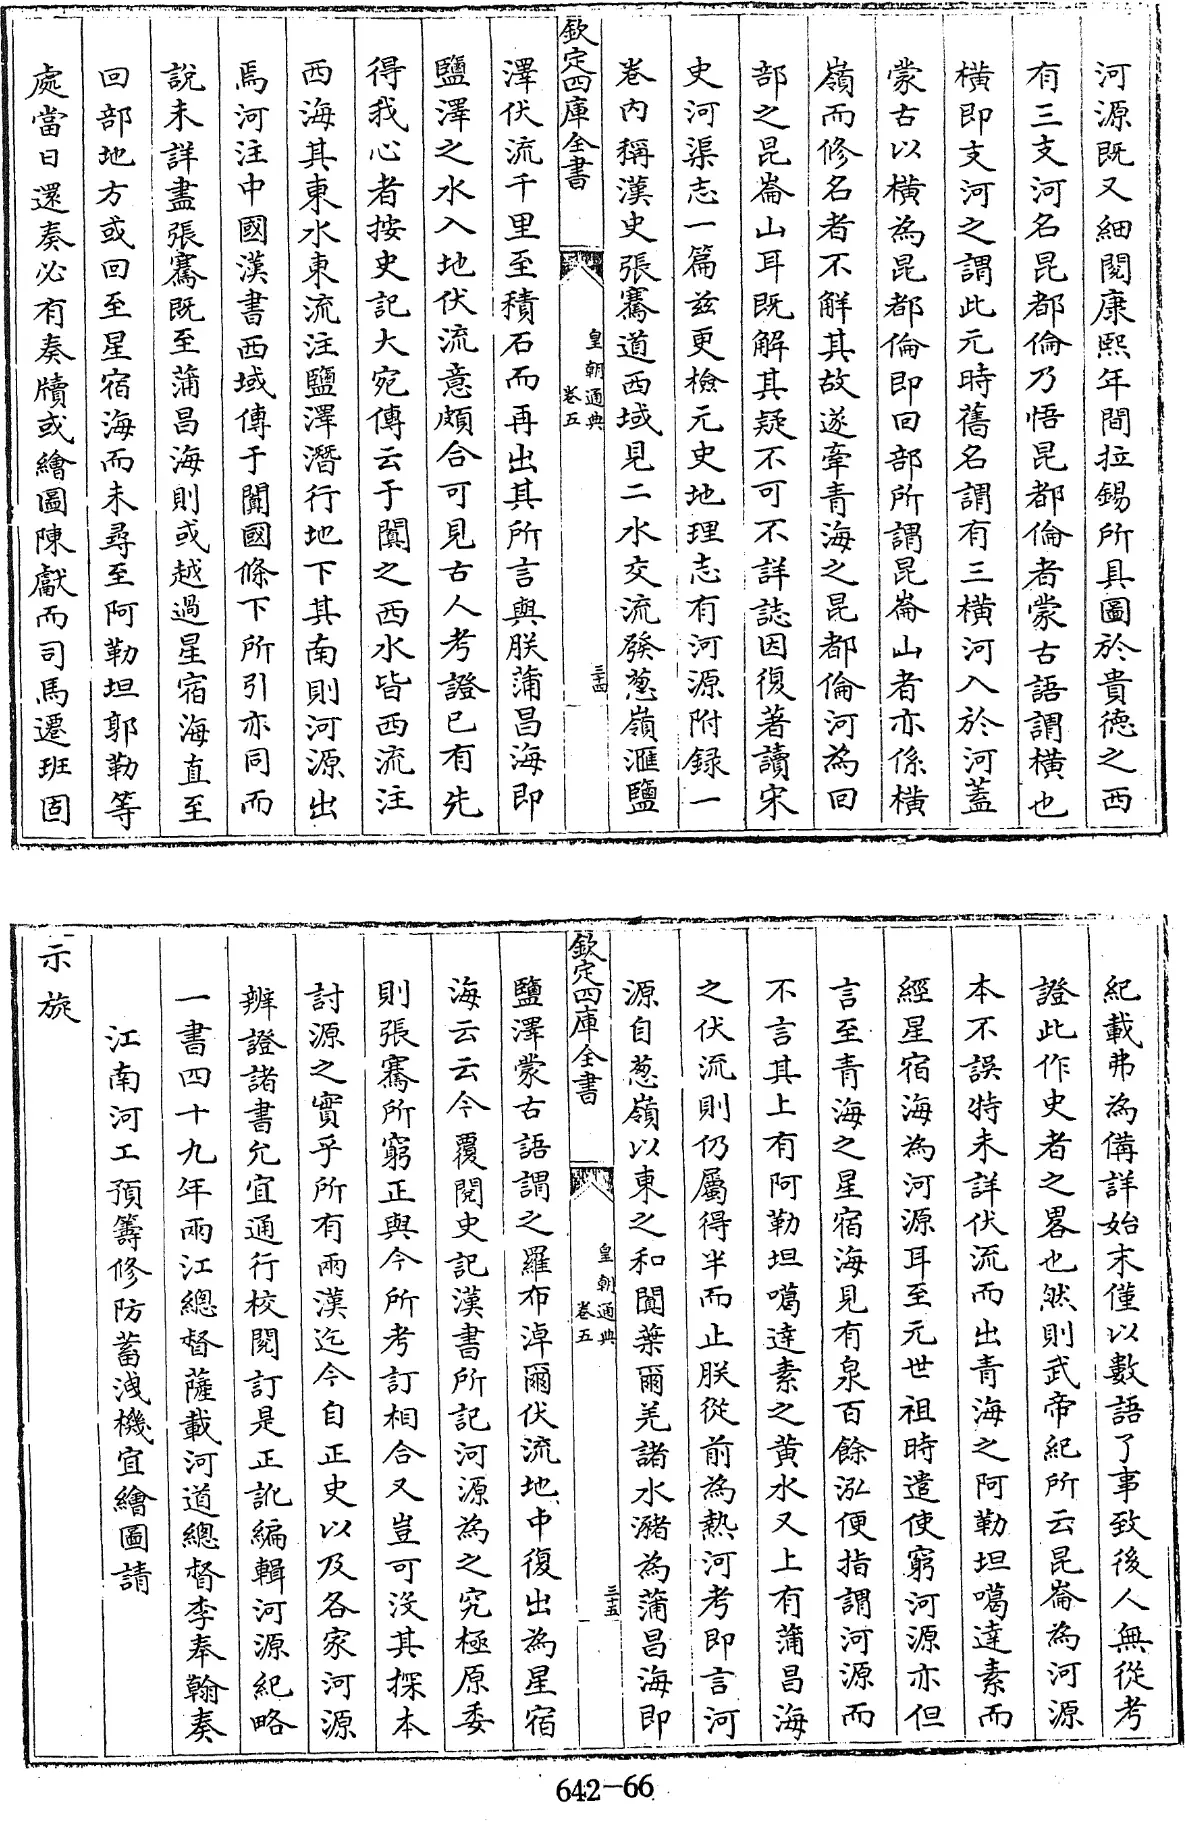 河源既又細閱康熙年間拉錫所具圖於貴德之西
有三支河名昆都倫乃悟昆都倫者蒙古語謂橫也
橫即支河之謂此元時舊名謂有三橫河入於河蓋
蒙古以橫為昆都倫即回部所謂昆崙山者亦係橫
嶺而修名者不解其故遂牽青海之昆都倫河為回
部之昆崙山耳既解其疑不可不詳誌因復著讀宋
史河渠志一篇茲更檢元史地理志有河源附録一
卷內稱漢史張騫道西域見二水交流發葱嶺滙鹽
欽定四庫全書
皇朝通典
卷五
三十四
澤伏流千里至積石而再出其所言與朕蒲昌海即
鹽澤之水入地伏流意頗合可見古人考證已有先
得我心者按史記大宛傳云于闐之西水皆西流注
西海其東水東流注鹽澤潛行地下其南則河源出
焉河注中國漢書西域傳于闐國條下所引亦同而
說未詳盡張騫既至蒲昌海則或越過星宿海直至
回部地方或回至星宿海而未尋至阿勒坦郭勒等
處當日還奏必有奏牘或繪圖陳獻而司馬遷班固
紀載弗為備詳始末僅以數語了事致後人無從考
證此作史者之畧也然則武帝紀所云昆崙為河源
本不誤特未詳伏流而出青海之阿勒坦噶達素而
經星宿海為河源耳至元世祖時遣使窮河源亦但
言至青海之星宿海見有泉百餘泓便指謂河源而
不言其上有阿勒坦噶達素之黃水又上有蒲昌海
之伏流則仍屬得半而止朕從前為熱河考即言河
源自葱嶺以東之和闐葉爾羌諸水瀦為蒲昌海即
欽定四庫全書
皇朝通典
卷五
三十五
鹽澤蒙古語謂之羅布淖爾伏流地中復出為星宿
海云云今覆閱史記漢書所記河源為之究極原委
則張騫所窮正與今所考訂相合又豈可沒其探本
討源之實乎所有兩漢迄今自正史以及各家河源
辨證諸書允宜通行校閱訂是正訛編輯河源紀略
一書四十九年兩江總督薩載河道總督李奉翰奏
江南河工預籌修防蓄洩機宜繪圖請
示旋
642-66